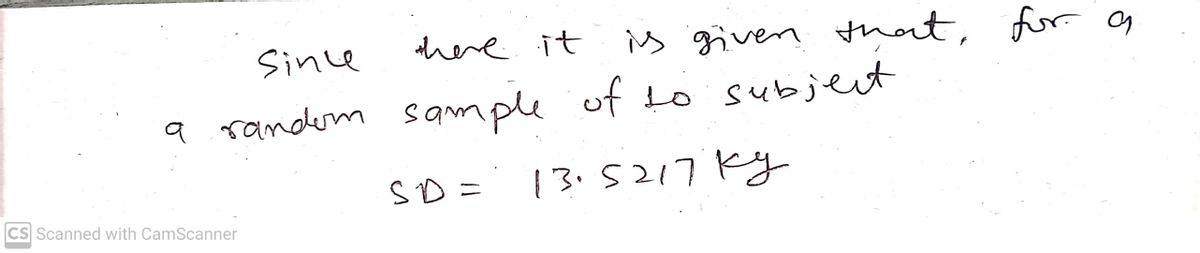 Since there it is given that, for a
a random sample of 10 subject
SD = 13.5217 Kg
CS Scanned with CamScanner